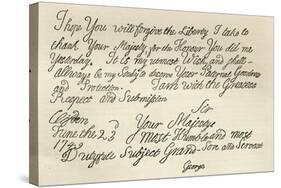 I hope You will forgive the Liberty I take to
thank Your Majesty for the Honour You did me
Yesterday. It is my utmost Wish and shall
always be my Study to deserve Your Paternal Goodness
and Protection. I am with the Greatest
Respect and Submission
Sir
June the 23 Your Majesty's
17 most Humble and most
Dutyfull Subject Grand-Son and Servant
George